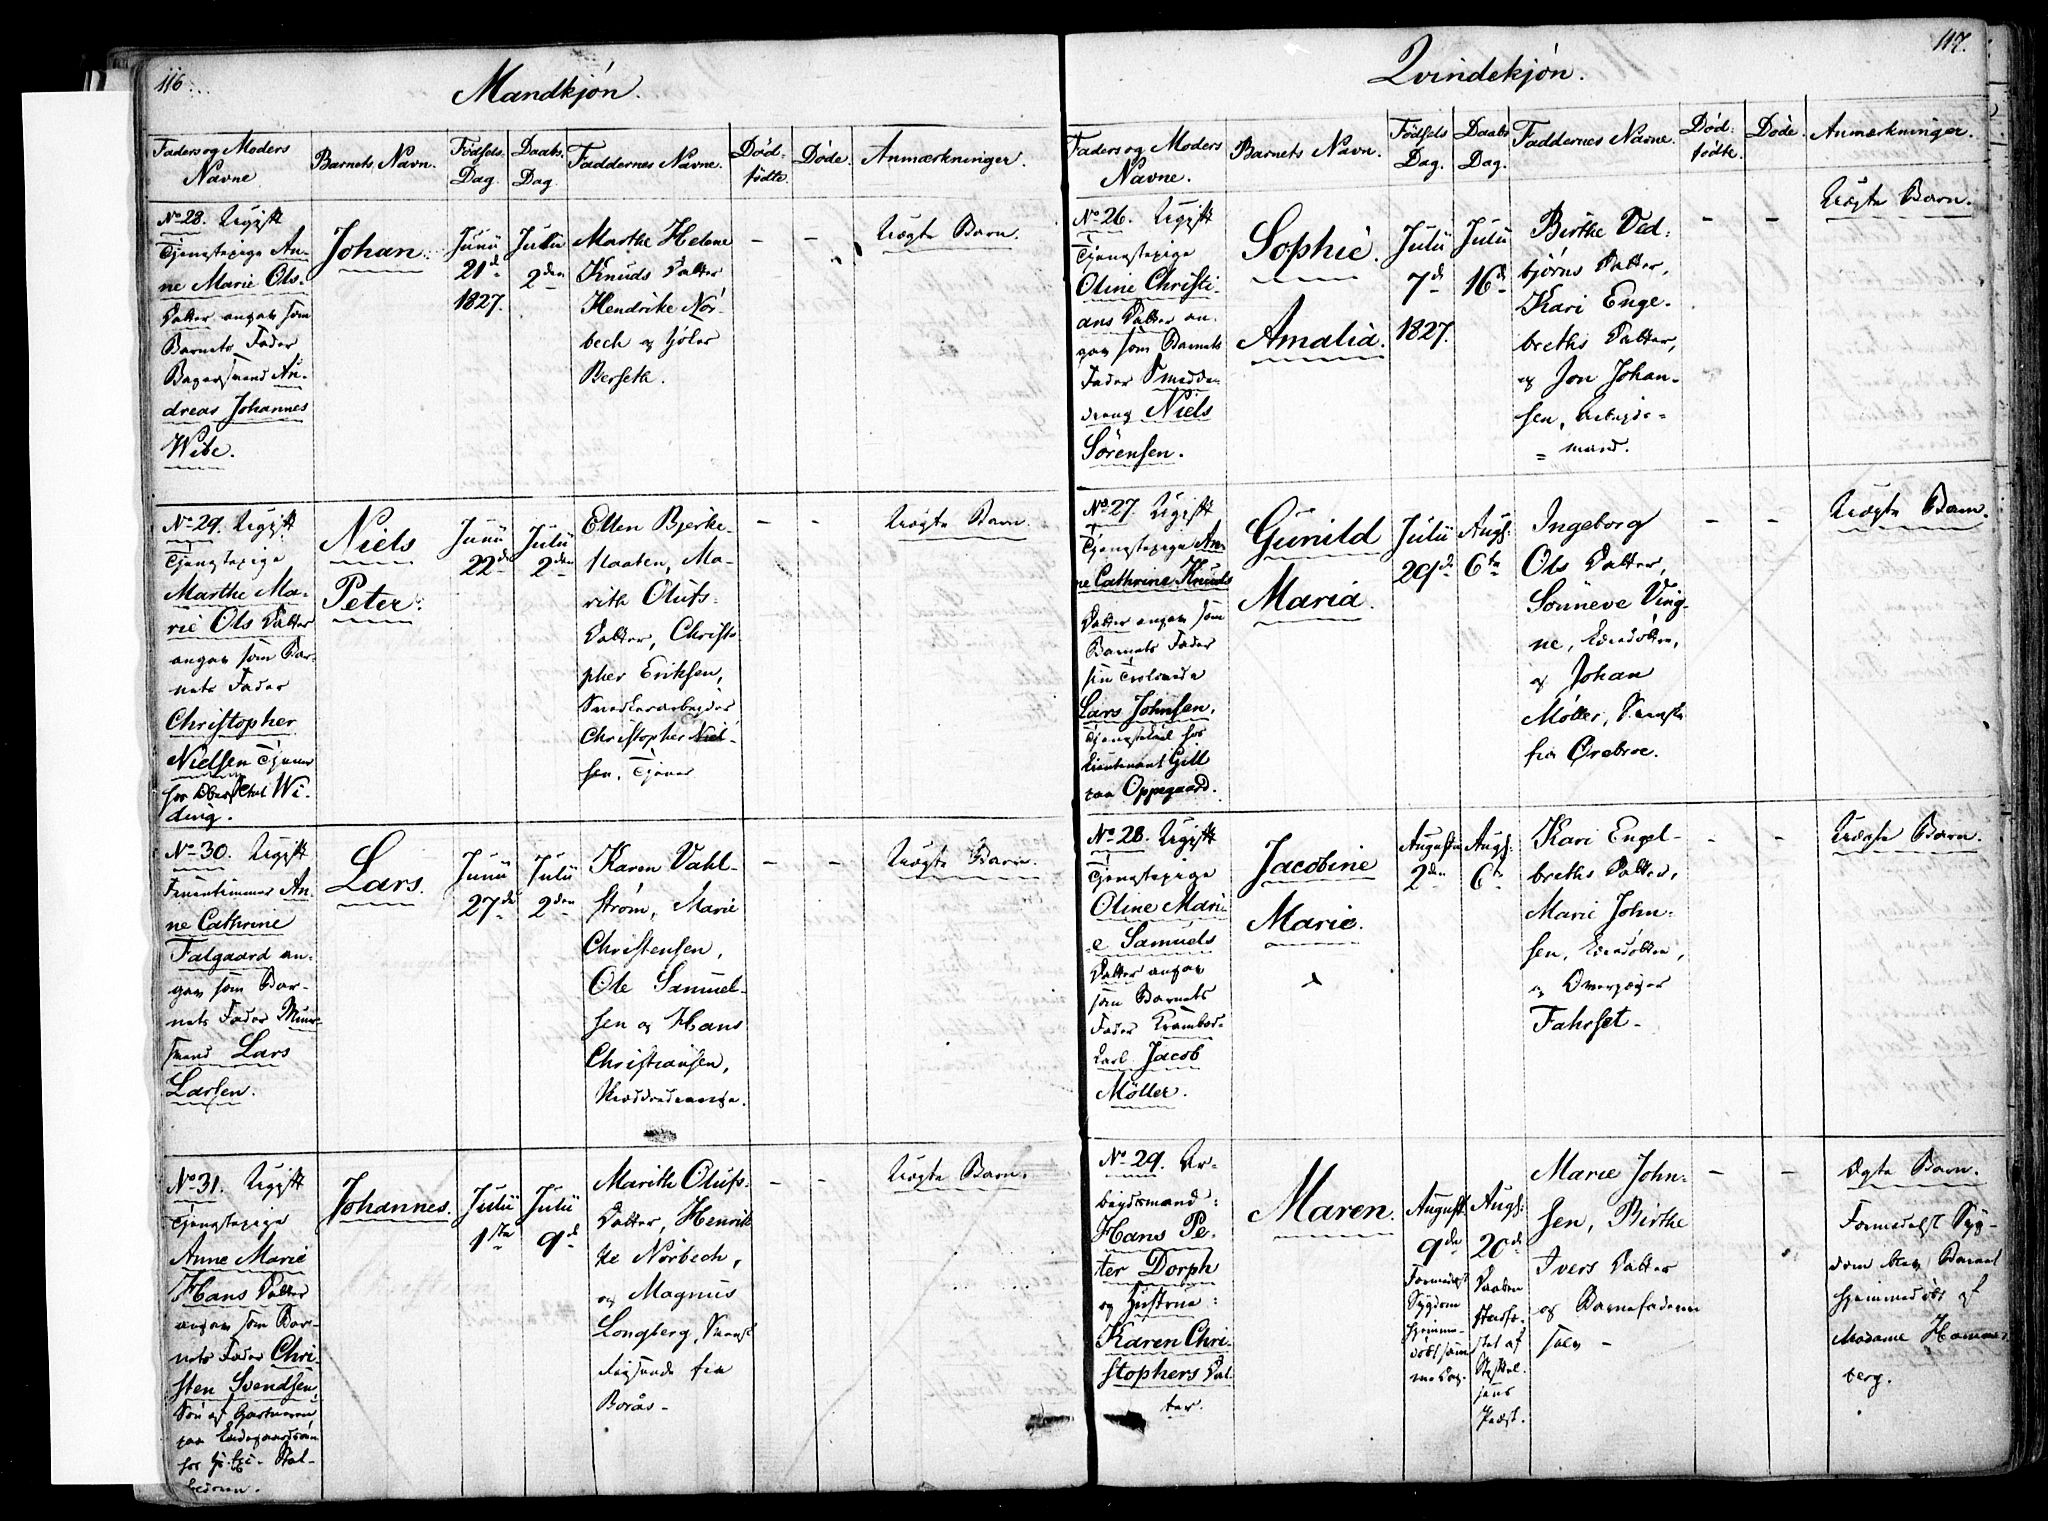 116
Mandkjøn.
Faders og Moders
Navne
Barnets Navn.
Fødsels
Dag.
Daabs
Dag.
Faddernes Navne.
Død-
fødte.
Døde.
Anmærkninger.
No 28. Ugift
Tjenestepige An-
ne Marie Ols-
Datter angav som
Barnets Fader
Bagersvend An-
dreas Johannes
Wibe.
Johan.
Junii
21de
1827.
Julii
2den
Marthe Helene
Knuds Datter
Hendrike Nör-
bech og
Berseth.
-
-
Uægte Barn.
No 29. Ugift
Tjenestepige
Marthe Ma-
rie Ols Datter
angav som Bar-
nets Fader
Christopher
Nielsen Tjener
hos Wi-
ding.
Niels
Peter.
Junii
22de
Julii
2den
Ellen Bjerke-
Ma-
rith Olufs-
Datter, Christo-
pher Eriksen,
Christopher Niel-
sen, Tjener
-
-
Uægte Barn.
No 30. Ugift
Fruentimmer An-
ne Cathrine
Falgaard an-
gav som Bar-
nets Fader Muur-
svend Lars
Larsen.
Lars.
Junii
27de
Julii
2den
Karen Vahl-
strøm, Marie
Christensen,
Ole Samuel-
sen og Hans
Christiansen,
-
-
Uægte Barn.
No 31. Ugift
Tjenestepige
Anne Marie
Hans Datter
angav som Bar-
nets Fader Chri-
sten Svendsen,
Søn af Gartneren
paa
hos
Johannes.
Julii
1ste
Julii
9de
Marith Olufs-
Datter, Henrik-
ke Nörbech,
og Magnus
Longberg, Svensk
fra
Borås-
-
-
Uægte Barn.
117.
Qvindekjøn.
Faders og Moders
Navne.
Barnets Navn.
Fødsels
Dag.
Daabs
Dag.
Faddernes Navne.
Død-
fødte.
Døde.
Anmærkninger.
No 26. Ugift
Tjenestepige
Oline Christi-
ans Datter an-
gav som Barnets
Fader Smedde-
dreng Niels
Sörensen.
Sophie
Amalia.
Julii
7de
1827.
Julii
16de
Birthe Ved-
bjørns Datter,
Kari Enge-
breths Datter,
og Jon Johan-
sen, Arbejds-
= mand.
-
-
Uægte Barn.
No 27. Ugift
Tjenestepige An-
ne Cathrine Knuds
Datter angav som
Barnets Fader
sin Trolovede
Lars Johnsen,
Tjenestekarl hos
Lieutenant Gill
paa Oppegaard.
Gunild
Maria.
Julii
29de
Augs:
6te
Ingeborg
Ols Datter,
Sönneve Ving-
ne,
og Johan
Møller, Svensk
fra Ørebroe.
-
-
Uægte Barn.
No 28. Ugift
Tjenestepige
Oline Mari-
e Samuels
Datter angav
som Barnets
Fader Krambod-
karl Jacob
Möller.
Jacobine
Marie.
Augusti
2den
Augs:
6te
Kari Engel-
breths Datter,
Marie John-
sen,
og
Fahrset-
-
-
Uægte Barn.
No 29. Ar-
beydsmand:
Hans Pe-
ter Dorph
og Hustrue:
Karen Chri-
stophers Dat-
ter.
Maren.
August
9de
Formedelst
Sygdom
hjemme-
døbt samme
Dag.
Augs:
20de
Daaben
stadfæ-
stet af
Præst.
Marie John-
sen, Birthe
Ivers Datter
og Barnefaderen
selv -
-
-
Ægte Barn.
Formedelst Syg-
dom blev Barnet
hjemmedøbt af
Madame Hammer-
berg.